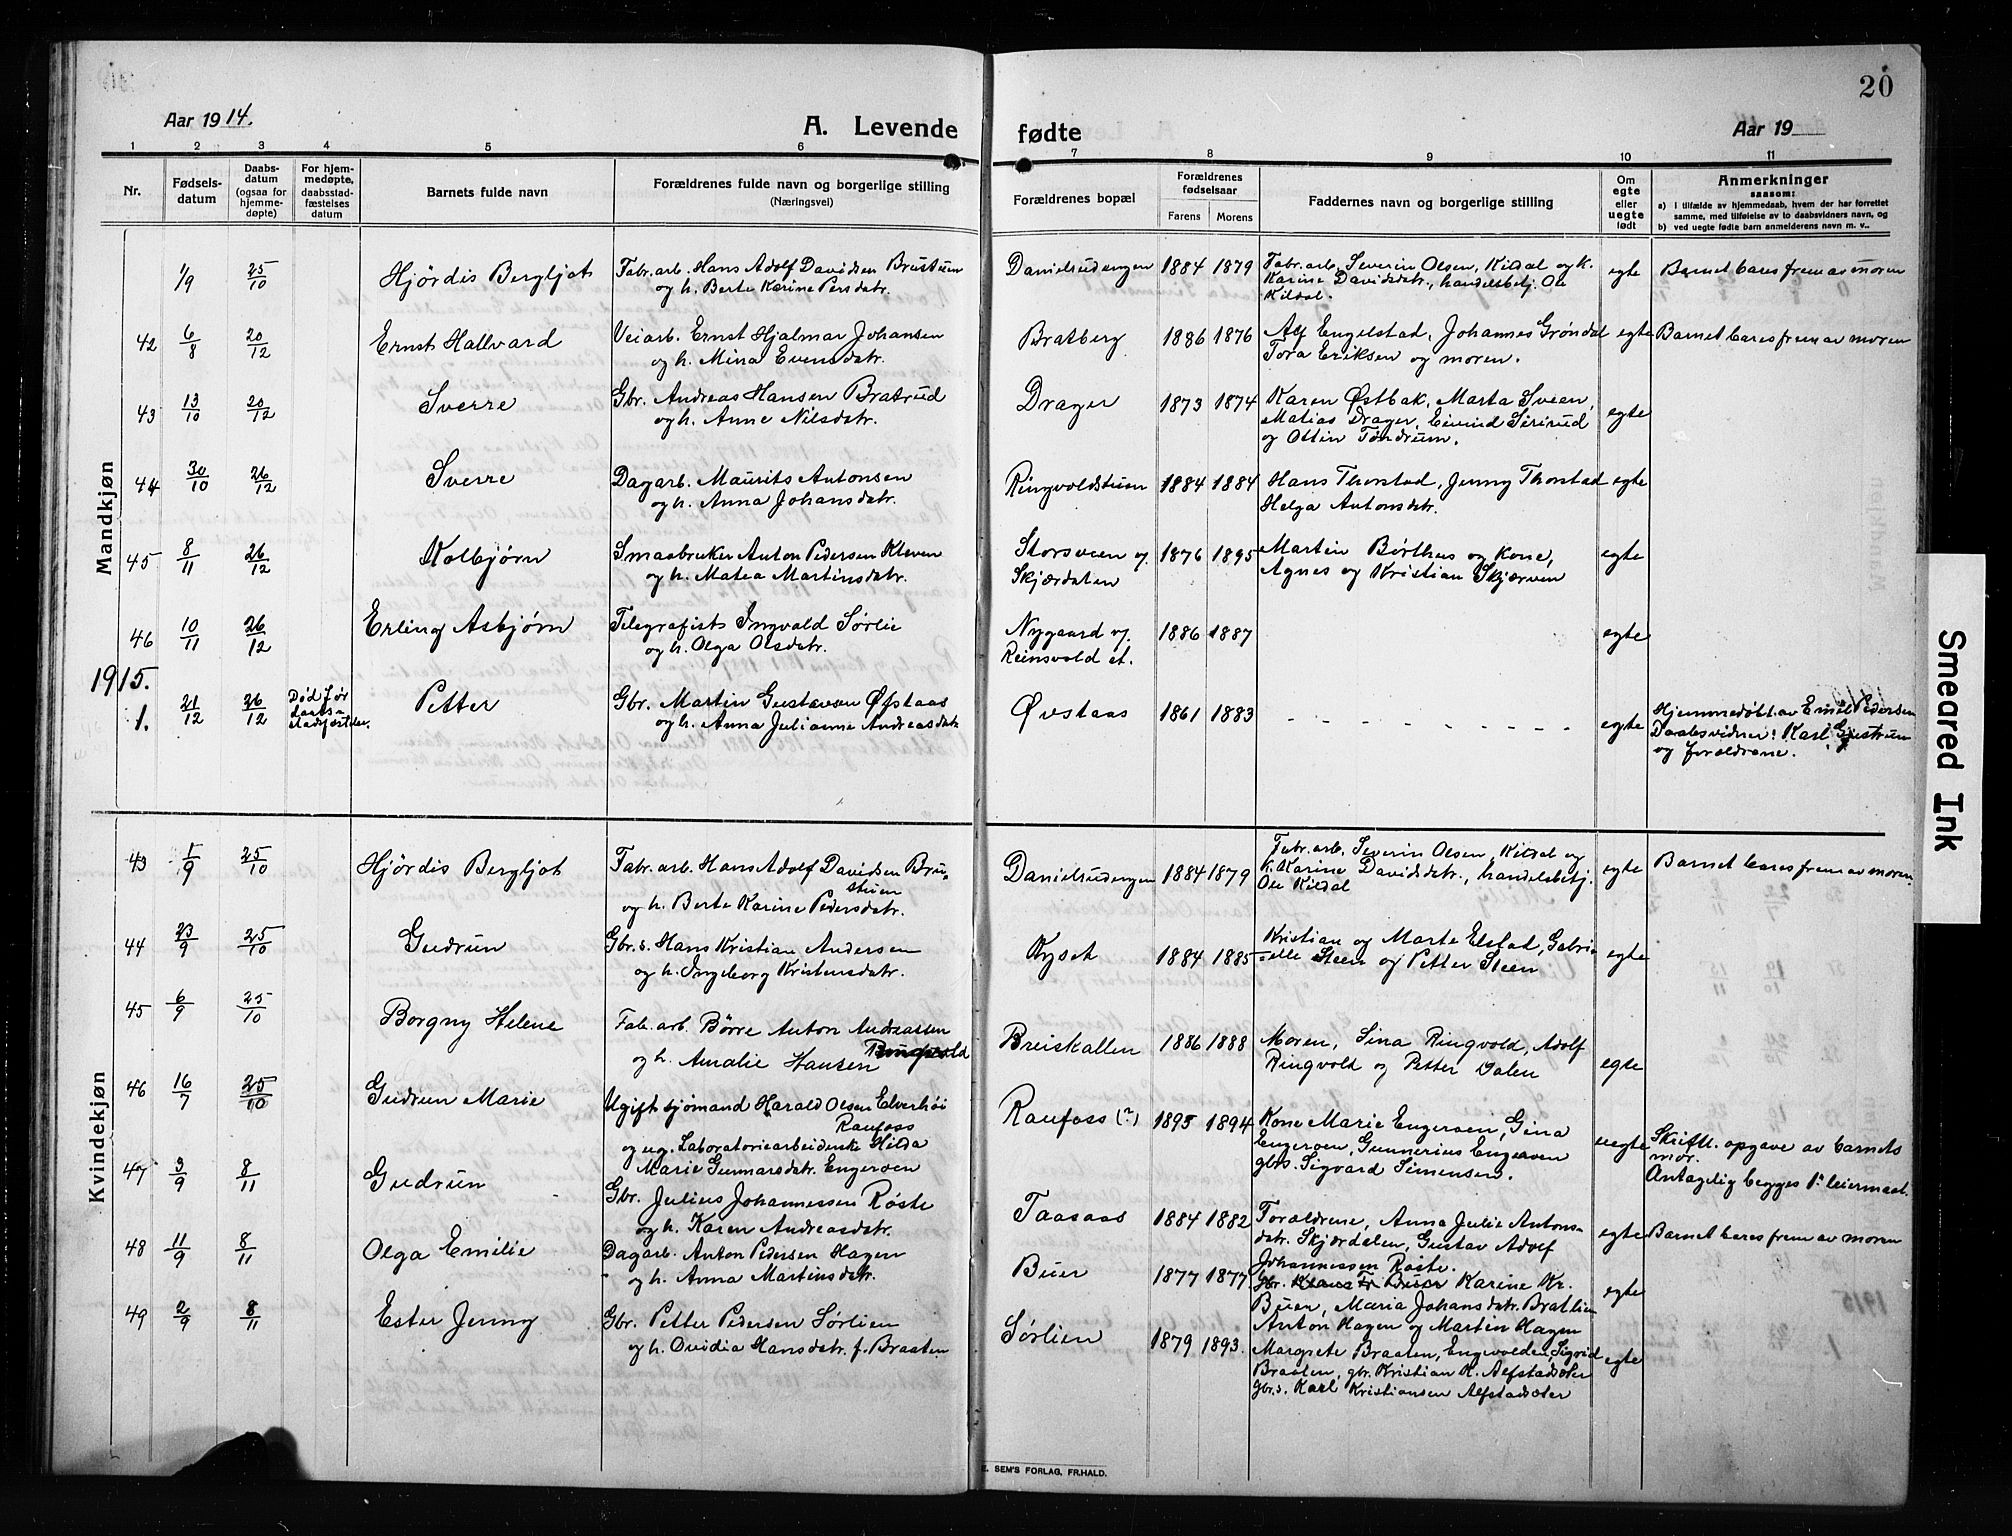 20
Aar 1914.
A. Levende fødte
Aar 19
1 2 3 4 5 6 7 8 9 10 11
Nr.
Fødsels-
datum
Daabs-
datum
(ogsaa for
hjemme-
døpte)
For hjem-
medøpte,
daabsstad-
fæstelses
datum
Barnets fulde navn
Forældrenes fulde navn og borgerlige stilling
(Næringsvei)
Forældrenes bopæl
Forældrenes
fødselsaar
Farens Morens
Faddernes navn og borgerlige stilling
Om
egte
eller
uegte
født
Anmerkninger
saasom:
a) i tilfælde av hjemmedaab, hvem der har forrettet
samme, med tilføielse av to daabsvidners navn, og
b) ved uegte fødte barn anmelderens navn m. v..
Mandkjøn
1/9 25/10 Hjørdis Bergljot Fabr.arb. Hans Adolf Davidsen Brustuen
og h. Berte Karine Persdatr.
Danielsudengen 1884 1879 Fabr. arb. Severin Olsen, Kildal og k.
Karine Davidsdatr., handelsbetj. Ole
Kildal.
egte Barnet bares frem av moren
42 6/8 20/12 Ernst Hallvard Veiarb. Ernst Hjalmar Johansen
og h. Mina Evensdatr.
Bratberg 1886 1876 Alf Engelstad, Johannes Grøndal
Tora Eriksen og moren.
egte Barnet bares frem av moren
43 13/10 20/12 Sverre Gbr. Andreas Hansen Bratrud
og h. Anne Nilsdatr.
Drager 1873 1874 Karen Østbak, Marta Sveen,
Matias Drager, Eivind Sirirud
og Ottin Tøndrum.
egte
44 30/10 26/12 Sverre Dagarb. Maurits Antonsen
og h. Anna Johansdatr.
Ringvoldstuen 1884 1884 Hans Thorstad, Jenny Thorstad
Helga Antonsdatr.
egte
45 8/11 26/12 Kolbjørn Smaabruker Anton Pedersen Kleven
og h. Matea Martinsdatr.
Storsveen og
Skjærdalen
1876 1895 Martin Børthus og kone,
Agnes og Kristian Skjærven
egte
46 10/11 26/12 Erling Asbjørn Telegrafist Ingvald Sørlie
og h. Olga Olsdatr.
Nygaard og
Reinsvold st.
1886 1887 egte
1915.
1. 21/12 26/12 Død før
daabs-
stadfæstelse.
Petter Gbr. Martin Gustavsen Øfstaas
og h. Anna Julianne Andreasdatr
Øvstaas 1861 1883 - - - - - - - - - egte
Hjemmedøbt av Emil Pedersen
Daabsvidner: Karl Gjestrum
og forældrene.
Kvindekjøn
43 1/9 25/10 Hjørdis Bergljot Fabr. arb. Hans Adolf Davidsen Bru-
stuen
og h. Berte Karine Pedersdatr.
Danielsudengen 1884 1879 Fabr. arb. Severin Olsen, Kildal og
k. Karine Davidsdatr., handelsbetj.
Ole Kildal
egte Barnet bares frem av moren.
44 23/9 25/10 Gudrun Gbr.s. Hans Kristian Andersen
og h. Ingeborg Kristensdatr.
Kyset 1884 1885 Kristian og Marte Elstad, Gabri-
elle Steen og Petter Steen
egte
45 6/9 25/10 Borgny Helene Fab. arb. Børre Anton Andreassen
og h. Amalie Hansen Ringvold
Breiskallen 1886 1888 Moren, Sina Ringvold, Adolf
Ringvold og Petter Dalen
egte
46 16/7 25/10 Gudrun Marie Ugift sjømand Harald Olsen Elverhøi
Raufoss
og ug. Laboratoriearbeiderske Hilda
Marie Gunnarsdatr. Engerøen
Raufoss (?) 1895 1894 Kone Marie Engerøen, Gina
Engerøen, Gunnerius Engerøen
gbrs. Sigvard Simensen.
uegte Skriftl. opgave av barnets
mor.
Antagelig begges 1. leiermaal.
47 3/9 8/11 Gudrun Gbr. Julius Johannessen Røste
og h. Karen Andreasdatr.
Taasaas 1884 1882 Forældrene, Anna Julie Antons-
datr. Skjærdalen, Gustav Adolf
Johannessen Røste.
egte Barnet bares frem av moren
48 11/9 8/11 Olga Emilie Dagarb. Anton Pedersen Hagen
og h. Anna Martinsdatr.
Buer 1877 1877 Karine Kr.
Buen, Maria Johansdatr. Bratlien
Anton Hagen og Martin Hagen
egte
49 2/9 8/11 Ester Jenny Gbr. Petter Pedersen Sørlien
og h. Ovidia Hansdatr. f. Braaten
Sørlien 1879 1893. Margrete Braaten, Engvolden, Sigrid
Braaten, gbr. Kristian K. Alfstadsæter
gbr.s. Karl Kristiansen Alfstadsæter
egte
E. SEM'S FORLAG, FR.HALD.
Smeared Ink